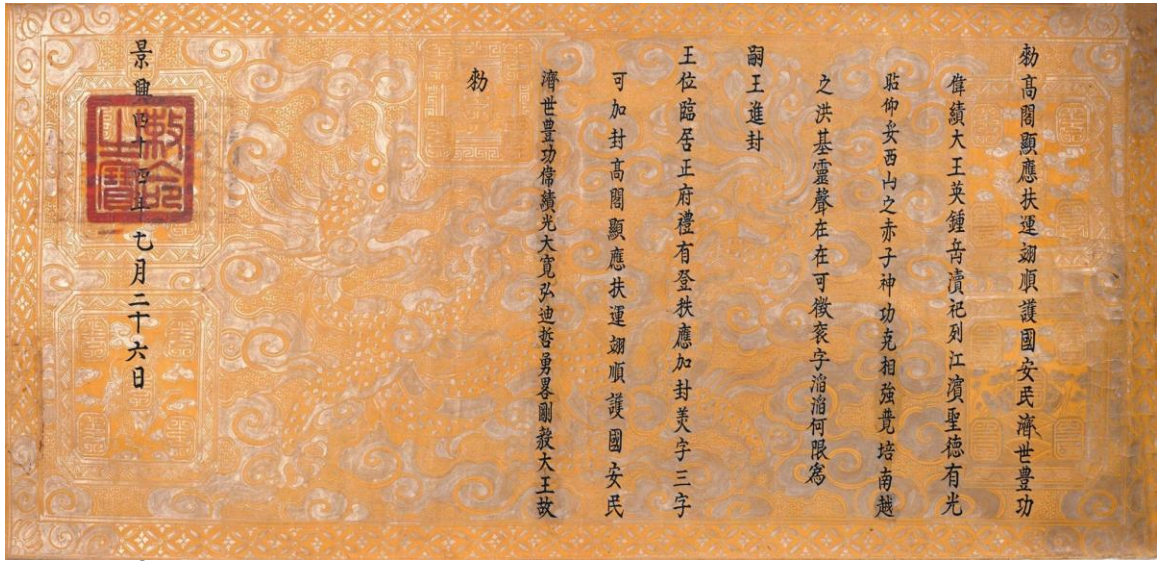 勑高閣顯應扶運翊順護國安民濟世豊功
偉績大王英鍾岳瀆祀列江濱聖徳有光
貽仰妥西山之赤子神功克相強㒷培南越
之洪基靈聲在在可徴褒字滔滔何限爲
嗣王進封
王位臨居正府禮有登秩應加封美字三字
可加封高閣顯應扶運翊順護國安民
濟世豊功偉績光大寛弘迪哲勇畧剛毅大王故
勑
景興四十四年七月二十六日
敕命之寶